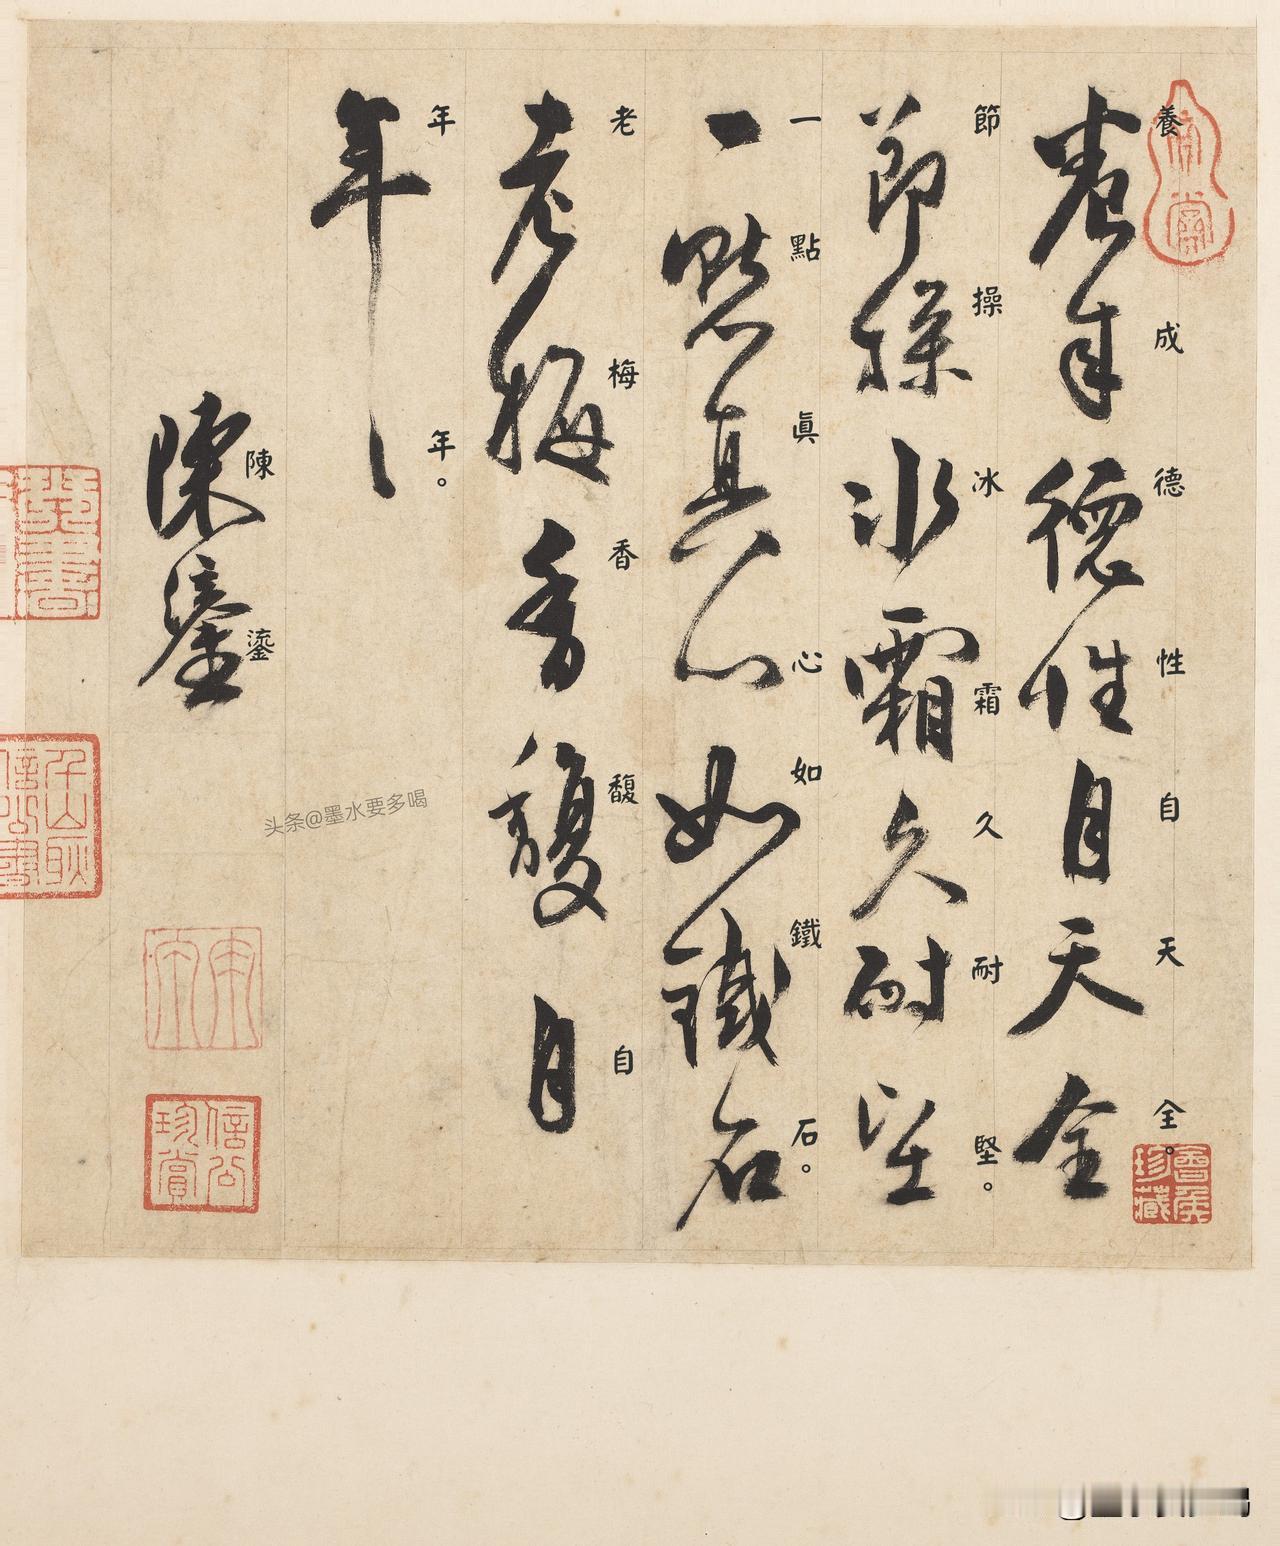 養成德性自天全。
節操冰霜久耐堅。
一點眞心如鐵石。
老梅香馥自
年年。
陳鎏
信公珍賞
珍藏
头条@墨水要多喝